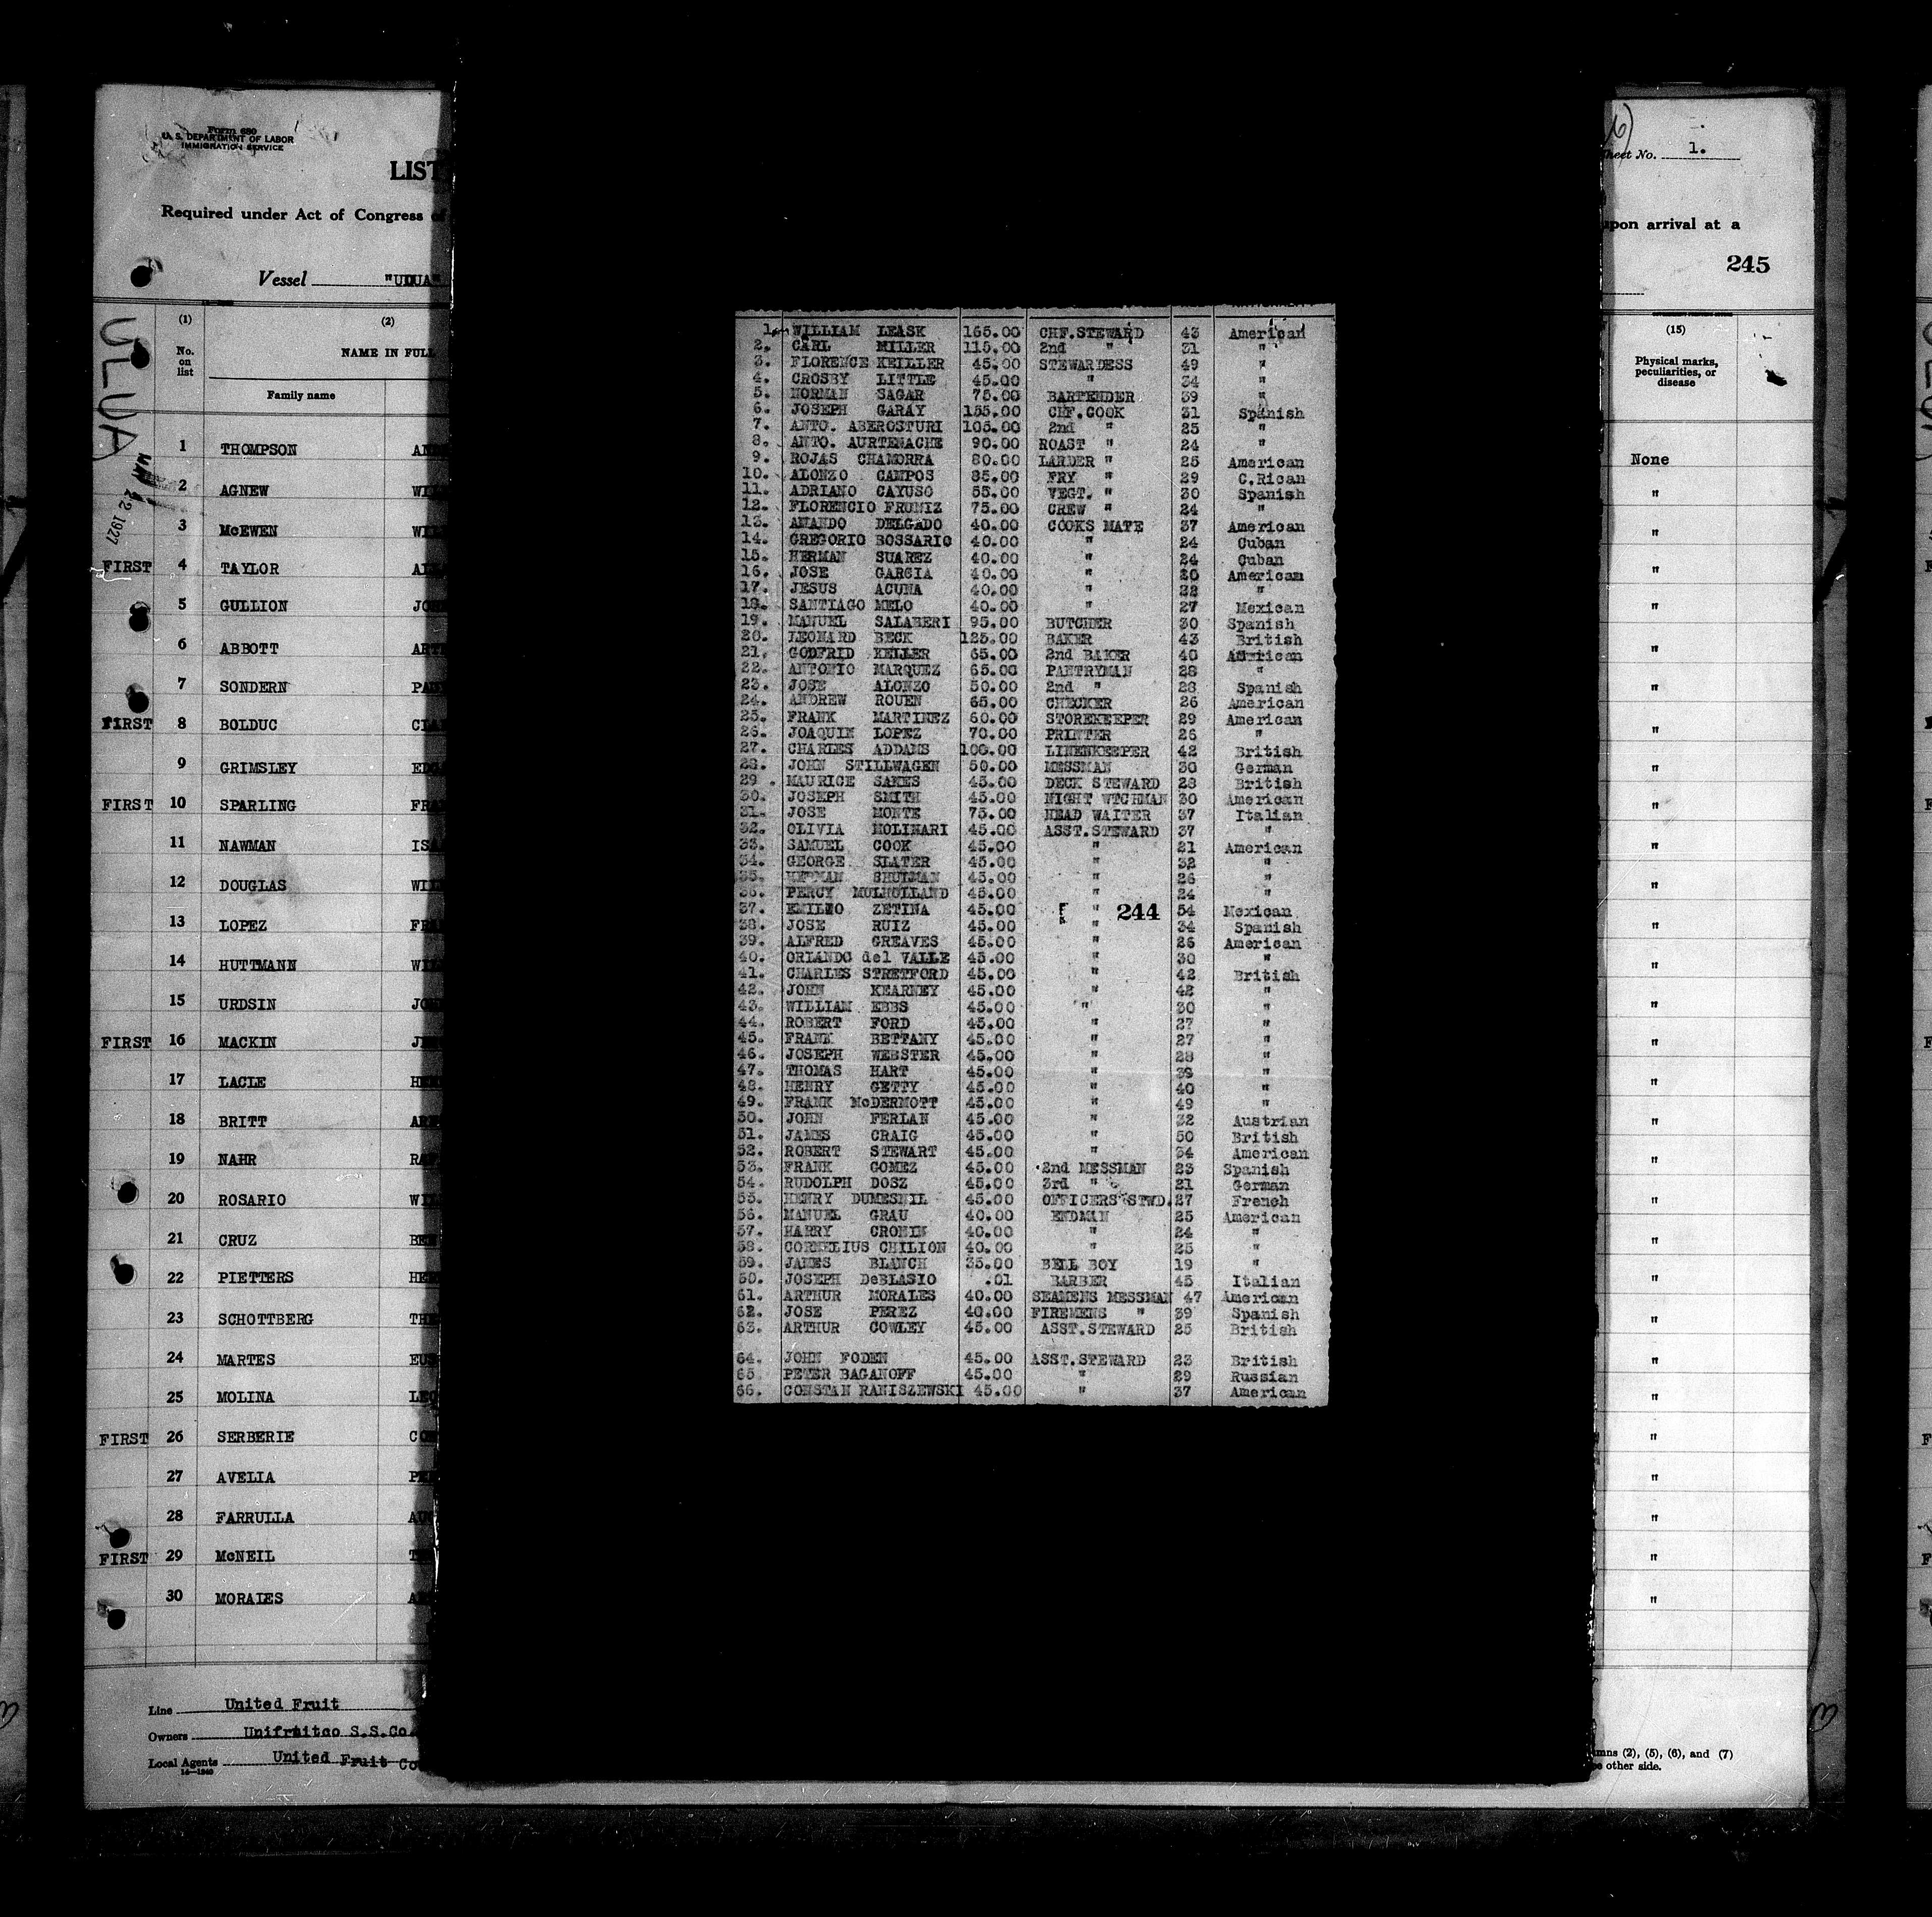 Form 680
U. S. DEPARTMENT OF LABOR
IMMIGRATION SERVICE
LIST
Required under Act of Congress of
Vessel "ULUA"
(1) (2)
No. on list
NAME IN FULL
Family name
ULUA
22 1927
1 THOMPSON
2 AGNEW
3 McEWEN
FIRST 4 TAYLOR
5 GULLION
6 ABBOTT
7 SONDERN
FIRST 8 BOLDUC
9 GRIMSLEY
FIRST 10 SPARLING
11 NAWMAN
12 DOUGLAS
13 LOPEZ
14 HUTTMANN
15 URDSIN
FIRST 16 MACKIN
17 LACLE
18 BRITT
19 NAHR
20 ROSARIO
21 CRUZ
22 PIETTERS
23 SCHOTTBERG
24 MARTES
25 MOLINA
FIRST 26 SERBERIE
27 AVELIA
28 FARRULLA
FIRST 29 McNEIL
30 MORALES
Line United Fruit
Owners Unifruitco S.S.Co.
Local Agents United Fruit Co
1. WILLIAM LEASK 165.00 CHF.STEWARD 43 American
2. CARL MILLER 115.00 2nd " 31 "
3. FLORENCE KEILLER 45.00 STEWARDESS 49 "
4. CROSBY LITTLE 45.00 " 34 "
5. NORMAN SAGAR 75.00 BARTENDER 39 "
6. JOSEPH GARAY 155.00 CHF.COOK 31 Spanish
7. ANTO. ABEROSTURI 105.00 2nd " 25 "
8. ANTO. AURTENACHE 90.00 ROAST " 24 "
9. ROJAS CHAMORRA 80.00 LARDER " 25 American
10. ALONZO CAMPOS 85.00 FRY " 29 C.Rican
11. ADRIANO CAYUSO 55.00 VEGT. " 30 Spanish
12. FLORENCIO FRUNIZ 75.00 CREW " 24 "
13. AMANDO DELGADO 40.00 COOKS MATE 37 American
14. GREGORIO BOSSARIO 40.00 " 24 Cuban
15. HERMAN SUAREZ 40.00 " 24 Cuban
16. JOSE GARCIA 40.00 " 20 American
17. JESUS ACUNA 40.00 " 22 "
18. SANTIAGO MELO 40.00 " 27 Mexican
19. MANUEL SALABERI 95.00 BUTCHER 30 Spanish
20. LEONARD BECK 125.00 BAKER 43 British
21. GODFRID KELLER 65.00 2nd BAKER 40 American
22. ANTONIO MARQUEZ 65.00 PANTRYMAN 28 "
23. JOSE ALONZO 50.00 2nd " 28 Spanish
24. ANDREW ROUEN 65.00 CHECKER 26 American
25. FRANK MARTINEZ 60.00 STOREKEEPER 29 American
26. JOAQUIN LOPEZ 70.00 PRINTER 26 "
27. CHARLES ADDAMS 100.00 LINENKEEPER 42 British
28. JOHN STILLWAGEN 50.00 MESSMAN 30 German
29. MAURICE SAKES 45.00 DECK STEWARD 28 British
30. JOSEPH SMITH 45.00 NIGHT WTCHMAN 30 American
31. JOSE MONTE 75.00 HEAD WAITER 37 Italian
32. OLIVIA MOLINARI 45.00 ASST.STEWARD 37 "
33. SAMUEL COOK 45.00 " 21 American
34. GEORGE SLATER 45.00 " 32 "
35. HERMAN SHULMAN 45.00 " 26 "
36. PERCY MULHOLLAND 45.00 " 24 "
37. EMILIO ZETINA 45.00 " 244 54 Mexican
38. JOSE RUIZ 45.00 " 34 Spanish
39. ALFRED GREAVES 45.00 " 26 American
40. ORLANDO del VALLE 45.00 " 30 "
41. CHARLES STRETFORD 45.00 " 42 British
42. JOHN KEARNEY 45.00 " 42 "
43. WILLIAM EBBS 45.00 " 30 "
44. ROBERT FORD 45.00 " 27 "
45. FRANK BETTANY 45.00 " 27 "
46. JOSEPH WEBSTER 45.00 " 28 "
47. THOMAS HART 45.00 " 39 "
48. HENRY GETTY 45.00 " 40 "
49. FRANK McDERMOTT 45.00 " 49 "
50. JOHN FERLAN 45.00 " 32 Austrian
51. JAMES CRAIG 45.00 " 50 British
52. ROBERT STEWART 45.00 " 34 American
53. FRANK GOMEZ 45.00 2nd MESSMAN 23 Spanish
54. RUDOLPH DOSZ 45.00 3rd " 21 German
55. HENRY DUMESNIL 45.00 OFFICERS STWD. 27 French
56. MANUEL GRAU 40.00 ENDMAN 25 American
57. HARRY CRONIN 40.00 " 24 "
58. CORNELIUS CHILION 40.00 " 25 "
59. JAMES BLANCH 35.00 BELL BOY 19 "
50. JOSEPH DeBLASIO .01 BARBER 45 Italian
61. ARTHUR MORALES 40.00 SEAMENS MESSMAN 47 American
62. JOSE PEREZ 40.00 FIREMENS " 39 Spanish
63. ARTHUR COWLEY 45.00 ASST.STEWARD 25 British
64. JOHN FODEN 45.00 ASST.STEWARD 23 British
65. PETER BAGANOFF 45.00 " 29 Russian
66. CONSTAN RANISZEWSKI 45.00 " 37 American
Sheet No. 1.
upon arrival at a
245
(15)
Physical marks, peculiarities, or disease
None
"
"
"
"
"
"
"
"
"
"
"
"
"
"
"
"
"
"
"
"
"
"
"
"
"
"
"
"
"
mns (2), (5), (6), and (7)
other side.